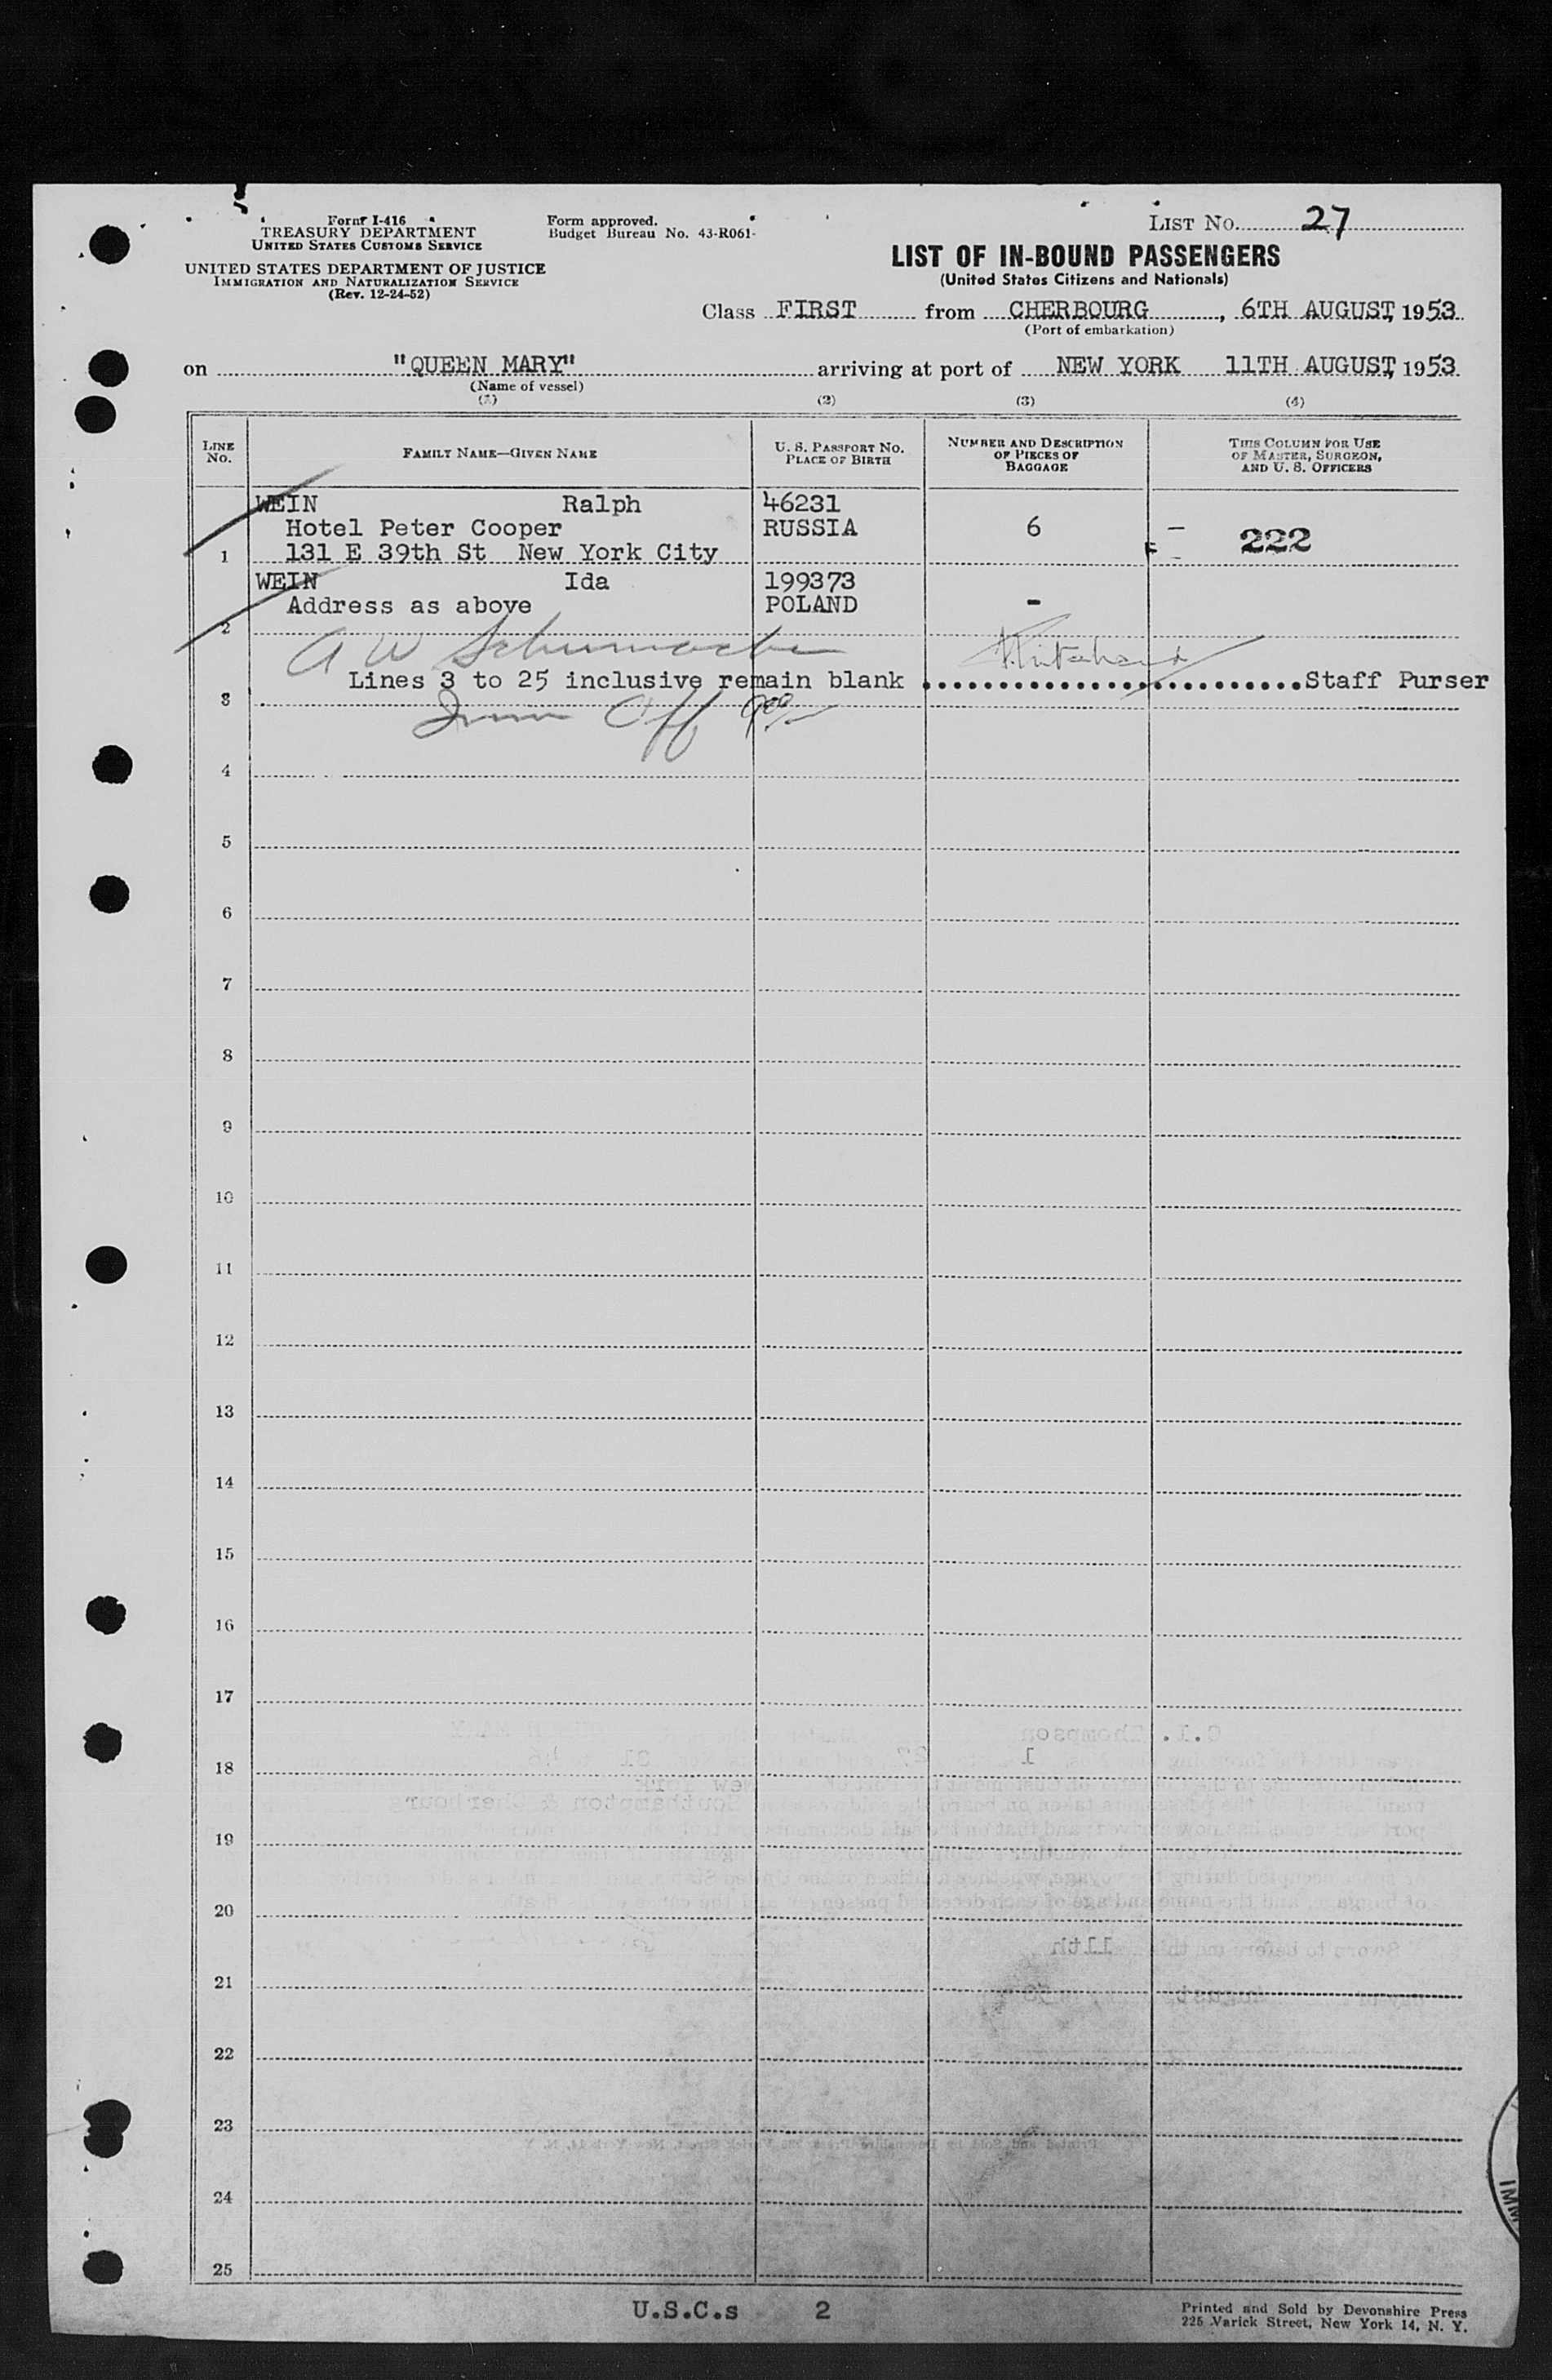 Form I-416
TREASURY DEPARTMENT
UNITED STATES CUSTOMS SERVICE
UNITED STATES DEPARTMENT OF JUSTICE
IMMIGRATION AND NATURALIZATION SERVICE
(Rev. 12-24-52)
Form approved.
Budget Bureau No. 43-R061-
LIST NO. 27
LIST OF IN-BOUND PASSENGERS
(United States Citizens and Nationals)
Class FIRST from CHERBOURG, 6TH AUGUST, 1953
(Port of embarkation)
on "QUEEN MARY" arriving at port of NEW YORK 11TH AUGUST, 1953
(Name of vessel)
(1) (2) (3) (4)
LINE NO. FAMILY NAME—GIVEN NAME U. S. PASSPORT NO. PLACE OF BIRTH NUMBER AND DESCRIPTION OF PIECES OF BAGGAGE THIS COLUMN FOR USE OF MASTER, SURGEON, AND U. S. OFFICERS
WEIN Ralph 46231
Hotel Peter Cooper RUSSIA 6 – 222
1 131 E 39th St New York City
WEIN Ida 199373
Address as above POLAND -
2
A W Schumacher
Lines 3 to 25 inclusive remain blank ..........................Staff Purser
3
Imm Off
4
5
6
7
8
9
10
11
12
13
14
15
16
17
18
19
20
21
22
23
24
25
IMM
U.S.C.s 2
Printed and Sold by Devonshire Press
225 Varick Street, New York 14, N. Y.